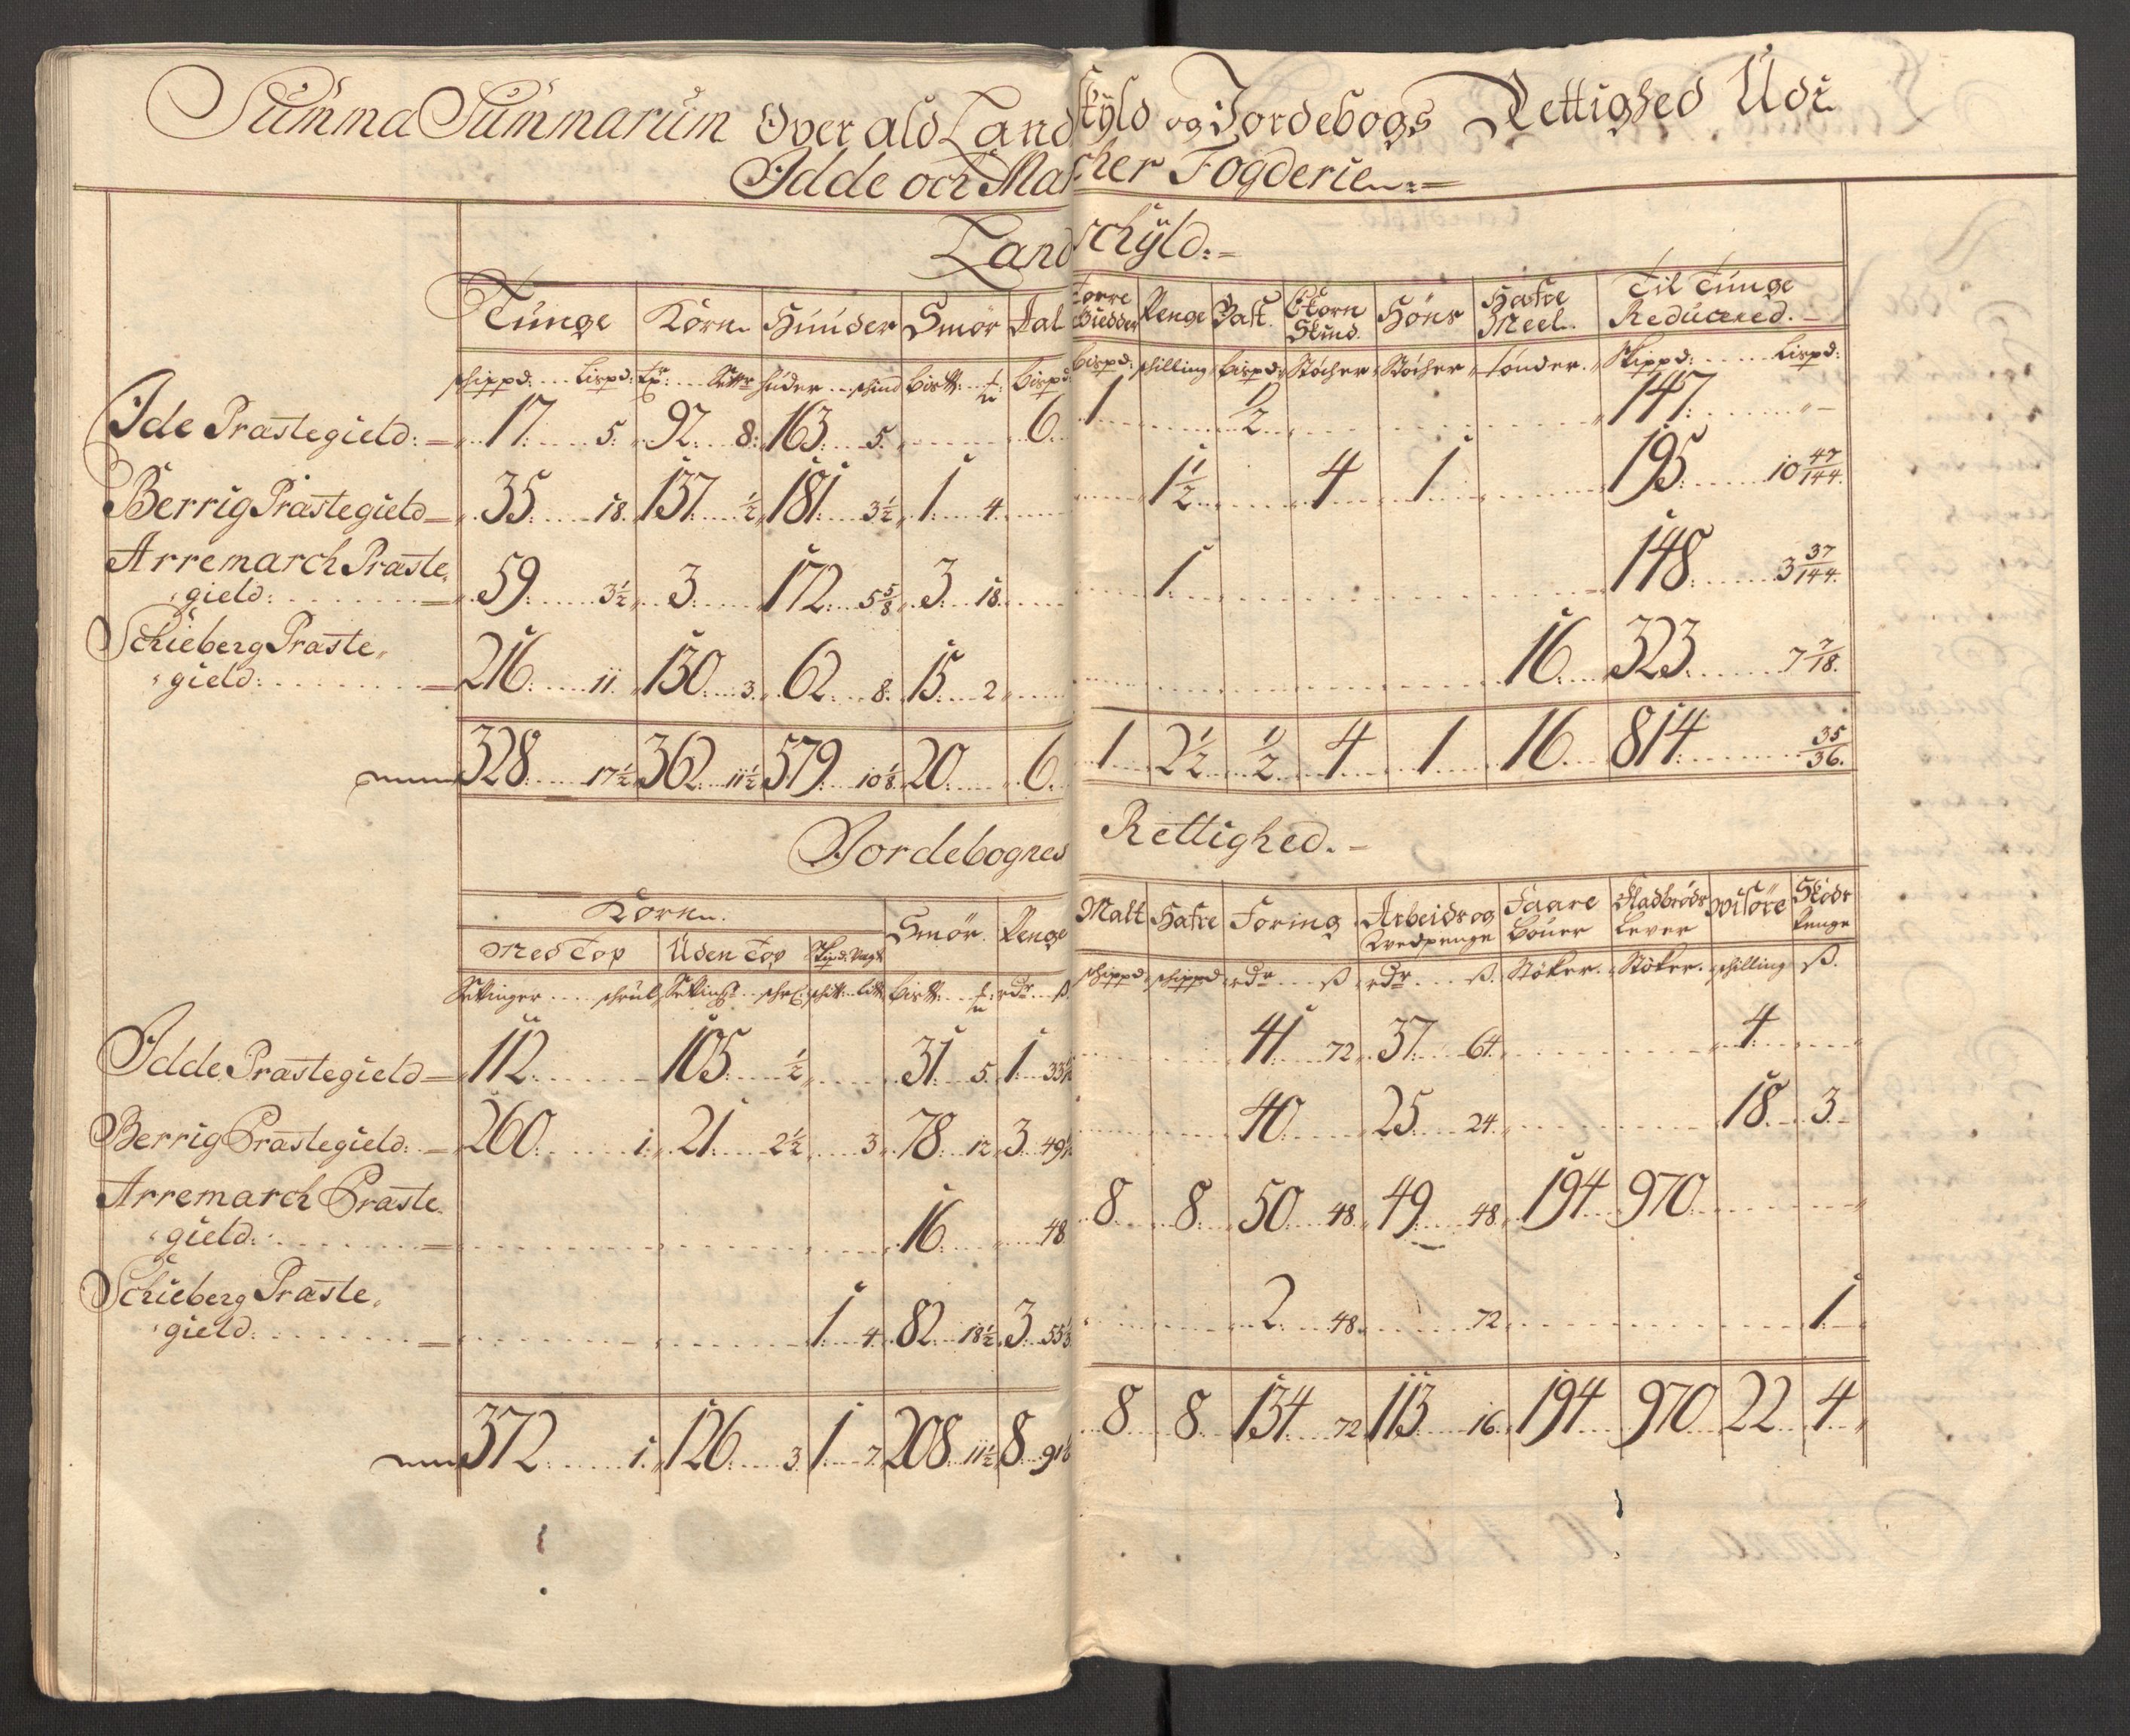 Summa Summarum Over ald Landskyld og Jordebogs Rettighed Udi
Idde och Marcher Fogderie
Landschyld:
Tunge Korn Huuder Smör Aal Torre Giedder Penge Past. Ekorn Skind. Höns Hafre Meel. Til Tunge Reducered.
schippd: Lispd: Huder schind bispd: schilling bispd: Stöcher Stöcher tönder. Skippd: Lispd:
Ide Præstegield: 17: 5: 92 8: 163 5 6 1 1/2 147:
Berrig Præstegield 35 18. 137 1/2 181 3 1/2 1 4 1 1/2 4 1 195 10 47/144
Arremarch Præste
gield: 59 3 1/2 3 172 5 5/8 3 18 1 148 3 37/144
Schieberg Præste
gield: 216 11 130 3 62 8 15 2 16 323 7 7/18
328 17 1/2 362 11 1/2 579 10 1/8 20 6 1 2 1/2 1/2 4 1 16 814 35/36
Jordebognes Rettighed.
Korn. Smör. Penge Malt Hafre Foring Arbeids og Hvedpenge Faare Bouer Fladbröds Lever Visöre Skids Penge
Med Top Uden Top Skipd: Vegt
Settinger schippd schippd rdr ß rdr ß. Stöker. Stöker. schilling ß.
Idde Præstegield 112 105 1/2 31 5 1 33 41 72 37 64 4
Berrig Præstegield: 260 1 21 2 1/2 3 78 12 3 49 40 25 24 18 3
Arremarch Præste
gield: 16 48 8 8 50 48 49 48 194 970
Schieberg Præste
gield: 1 4 82 18 1/2 3 55 2 48 72 1
372 1 126 3 1 7 208 11 1/2 8 91 8 8 134 72 113 16 194 970 22 4